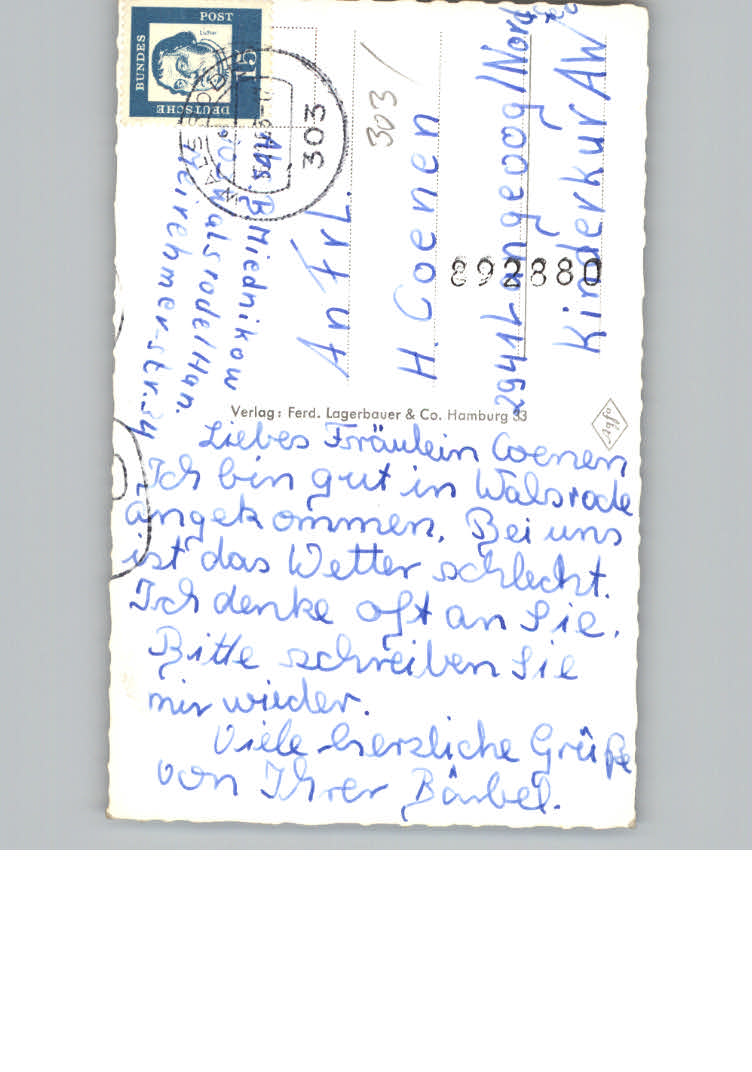 DEUTSCHE
BUNDES
POST
15
Luther
303
Abs. B. Miednikow
Walsrode/Han.
An Frl.
H. Coenen
2941 Langeoog/Nord
Kinderkur AW
303
892880
Verlag: Ferd. Lagerbauer & Co. Hamburg 33
aflu
Liebes Fräulein Coenen
Ich bin gut in Walsrode
angekommen. Bei uns
ist das Wetter schlecht.
Ich denke oft an Sie.
Bitte schreiben Sie
mir wieder.
Viele herzliche Grüße
von Ihrer Bärbel.